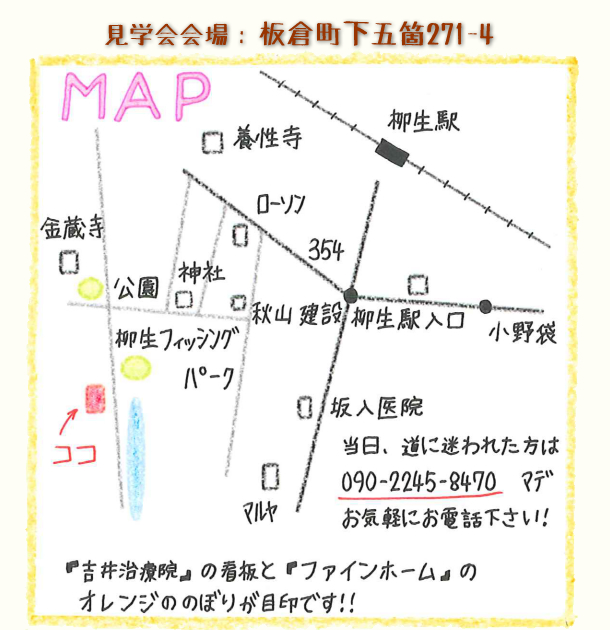 見学会会場：板倉町下五箇271-4
MAP
柳生駅
養性寺
ローソン
金蔵寺
354
神社
公園
秋山建設
柳生駅入口
小野袋
柳生フィッシング
パーク
坂入医院
ココ
マルヤ
当日、道に迷われた方は
090-2245-8470 マデ
お気軽にお電話下さい!
『吉井治療院』の看板と『ファインホーム』の
オレンジののぼりが目印です!!